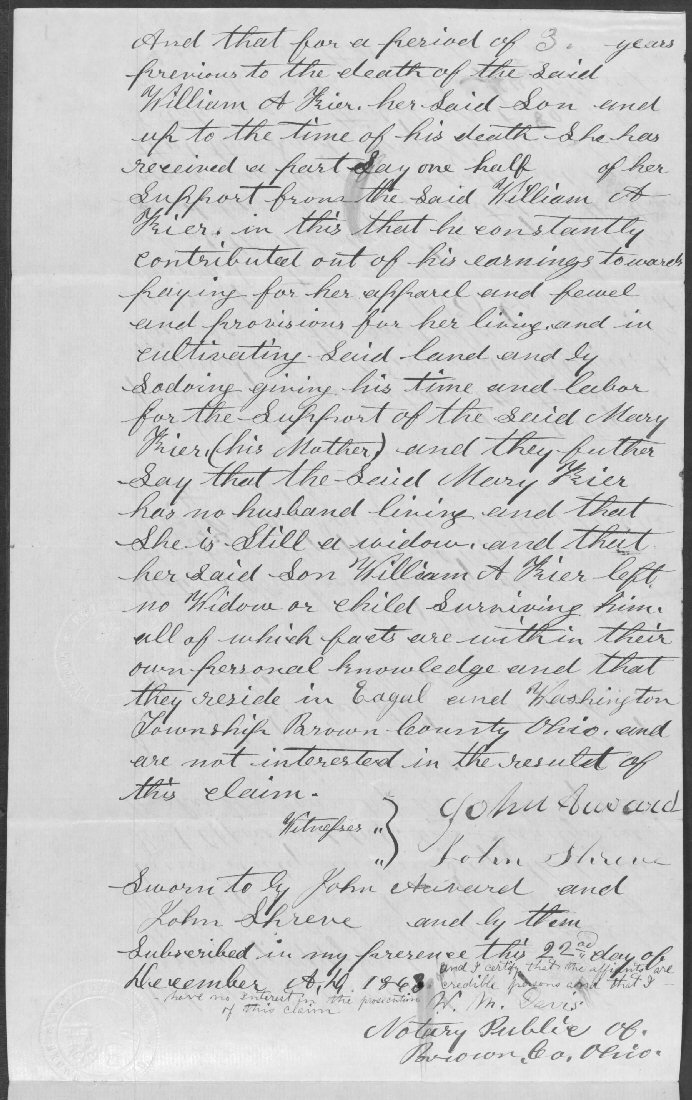 And that for a period of 3. years
previous to the death of the said
William A Kier. her Said Son and
up to the time of his death She has
received a part Say one half of her
Support from the Said William A
Kier. in this that he constantly
contributed out of his earnings towards
paying for her apparel and fewel
and provisions for her living. and in
cultivating Said land and by
Sodoing giving his time and labor
for the Support of the said Mary
Kier. (his Mother) and they futher
Say that the Said Mary Kier
has no husband living and that
She is Still a widow. and that
her Said Son William A Kier left
no Widow or child Surviving him.
all of which facts are within their
own personal knowledge and that
they reside in Eagul and Washington
Township Brown County Ohio. and
are not interested in the result of
this claim.
Witnesses " } John Auvard
" John Shreve
Sworn to by John Auvard and
John Shreve and by them
Subscribed in my presence this 22nd day of
December A.D. 1863. and I certify that the affiants are
credible persons and that I
have no interest in the prosecution
of this claim W. M.
Notary Public of.
Brown, Co, Ohio.